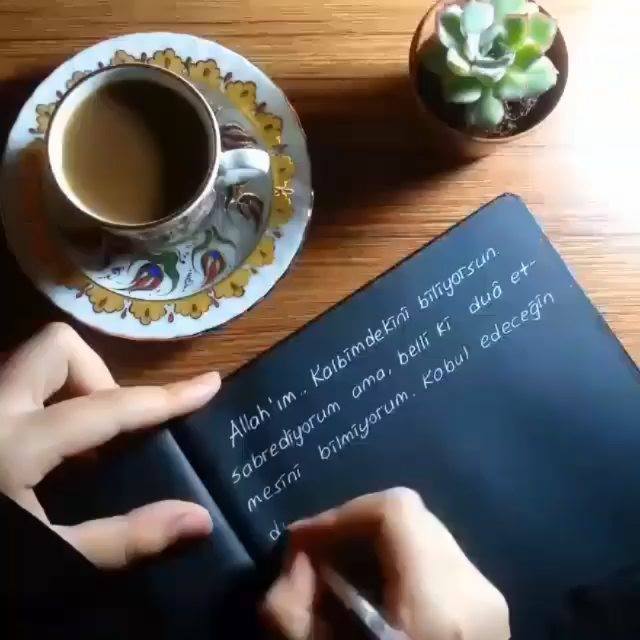 Allah'ım.. Kalbimdekini biliyorsun.
sabrediyorum ama, belli ki duâ et-
mesini bilmiyorum. Kabul edeceğin
du